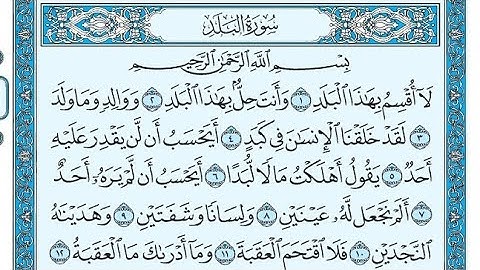 سُورَةُ البَلَدِ
بِسْمِ اللَّهِ الرَّحْمَٰنِ الرَّحِيمِ
لَآ أُقْسِمُ بِهَٰذَا ٱلْبَلَدِ ١ وَأَنتَ حِلٌّۢ بِهَٰذَا ٱلْبَلَدِ ٢ وَوَالِدٍ وَمَا وَلَدَ
٣ لَقَدْ خَلَقْنَا ٱلْإِنسَٰنَ فِي كَبَدٍ ٤ أَيَحْسَبُ أَن لَّن يَقْدِرَ عَلَيْهِ
أَحَدٌ ٥ يَقُولُ أَهْلَكْتُ مَالًا لُّبَدًا ٦ أَيَحْسَبُ أَن لَّمْ يَرَهُۥٓ أَحَدٌ
٧ أَلَمْ نَجْعَل لَّهُۥ عَيْنَيْنِ ٨ وَلِسَانًا وَشَفَتَيْنِ ٩ وَهَدَيْنَٰهُ
ٱلنَّجْدَيْنِ ١٠ فَلَا ٱقْتَحَمَ ٱلْعَقَبَةَ ١١ وَمَآ أَدْرَىٰكَ مَا ٱلْعَقَبَةُ ١٢